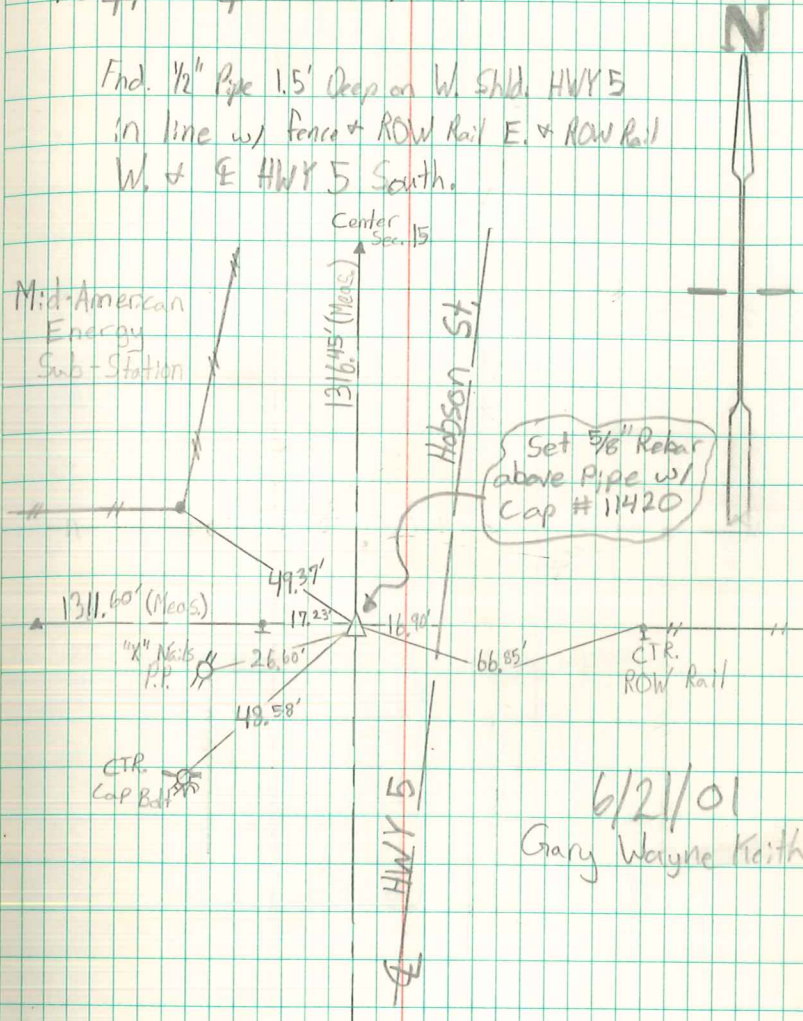 Fnd. 1/2" Pipe 1.5' Deep on W. Shld. HWY 5
in line w/ fence & ROW Rail E. & ROW Rail
W. & ℄ HWY 5 South.
N
Center
Sec. 15
Mid-American
Energy
Sub-Station
1316.45' (Meas.)
Hobson St.
Set 5/8" Rebar
above Pipe w/
Cap # 11420
49.37'
1311.60' (Meas.)
17.23'
16.90'
"X" Nails
P.P.
26.60'
66.85'
CTR.
ROW Rail
48.58'
CTR.
Cap Bolt
HWY 5
℄
6/21/01
Gary Wayne Keith